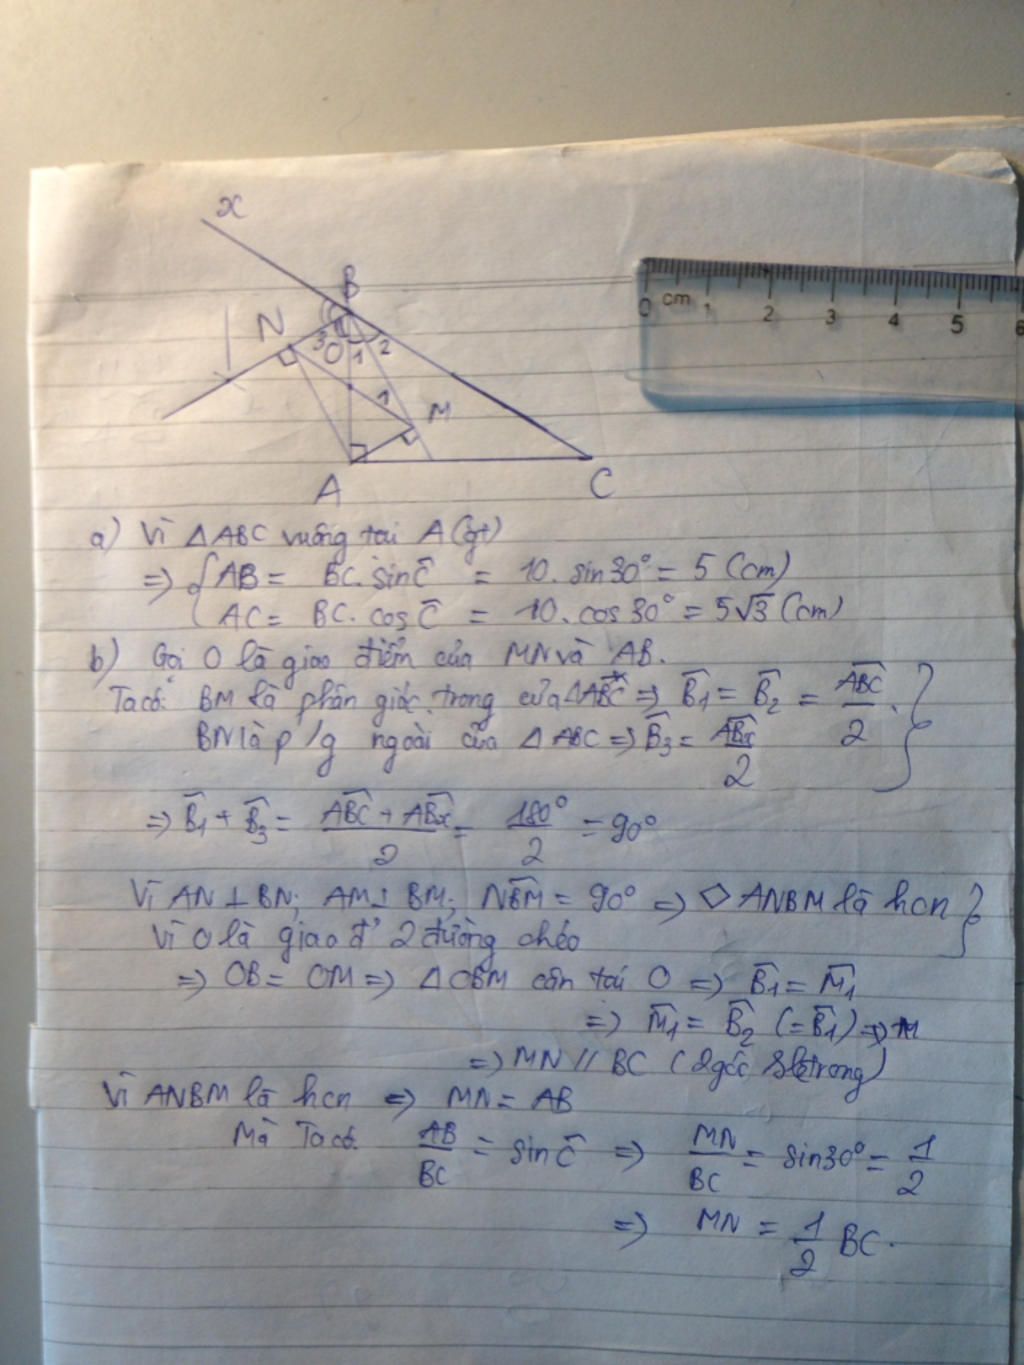 x
B
N
3 O 1 2
1
M
A
C
0 cm 1 2 3 4 5 6
a) Vì ΔABC vuông tại A (gt)
=> { AB = BC. sin Ĉ = 10. sin 30° = 5 (cm)
AC = BC. cos Ĉ = 10. cos 30° = 5√3 (cm)
b) Gọi O là giao điểm của MN và AB.
Ta có: BM là phân giác trong của ΔABC => B̂1 = B̂2 = ABC/2
BN là p/g ngoài của ΔABC => B̂3 = ABx/2 }
=> B̂1 + B̂3 = (ABC + ABx)/2 = 180°/2 = 90°
Vì AN ⊥ BN; AM ⊥ BM; NBM = 90° => ◇ ANBM là hcn }
Vì O là giao đ' 2 đường chéo
=> OB = OM => ΔOBM cân tại O => B̂1 = M̂1
=> M̂1 = B̂2 (= B̂1)
=> MN // BC (2 góc sltrong)
Vì ANBM là hcn => MN = AB
Mà Ta có: AB/BC = sin Ĉ => MN/BC = sin 30° = 1/2
=> MN = 1/2 BC.